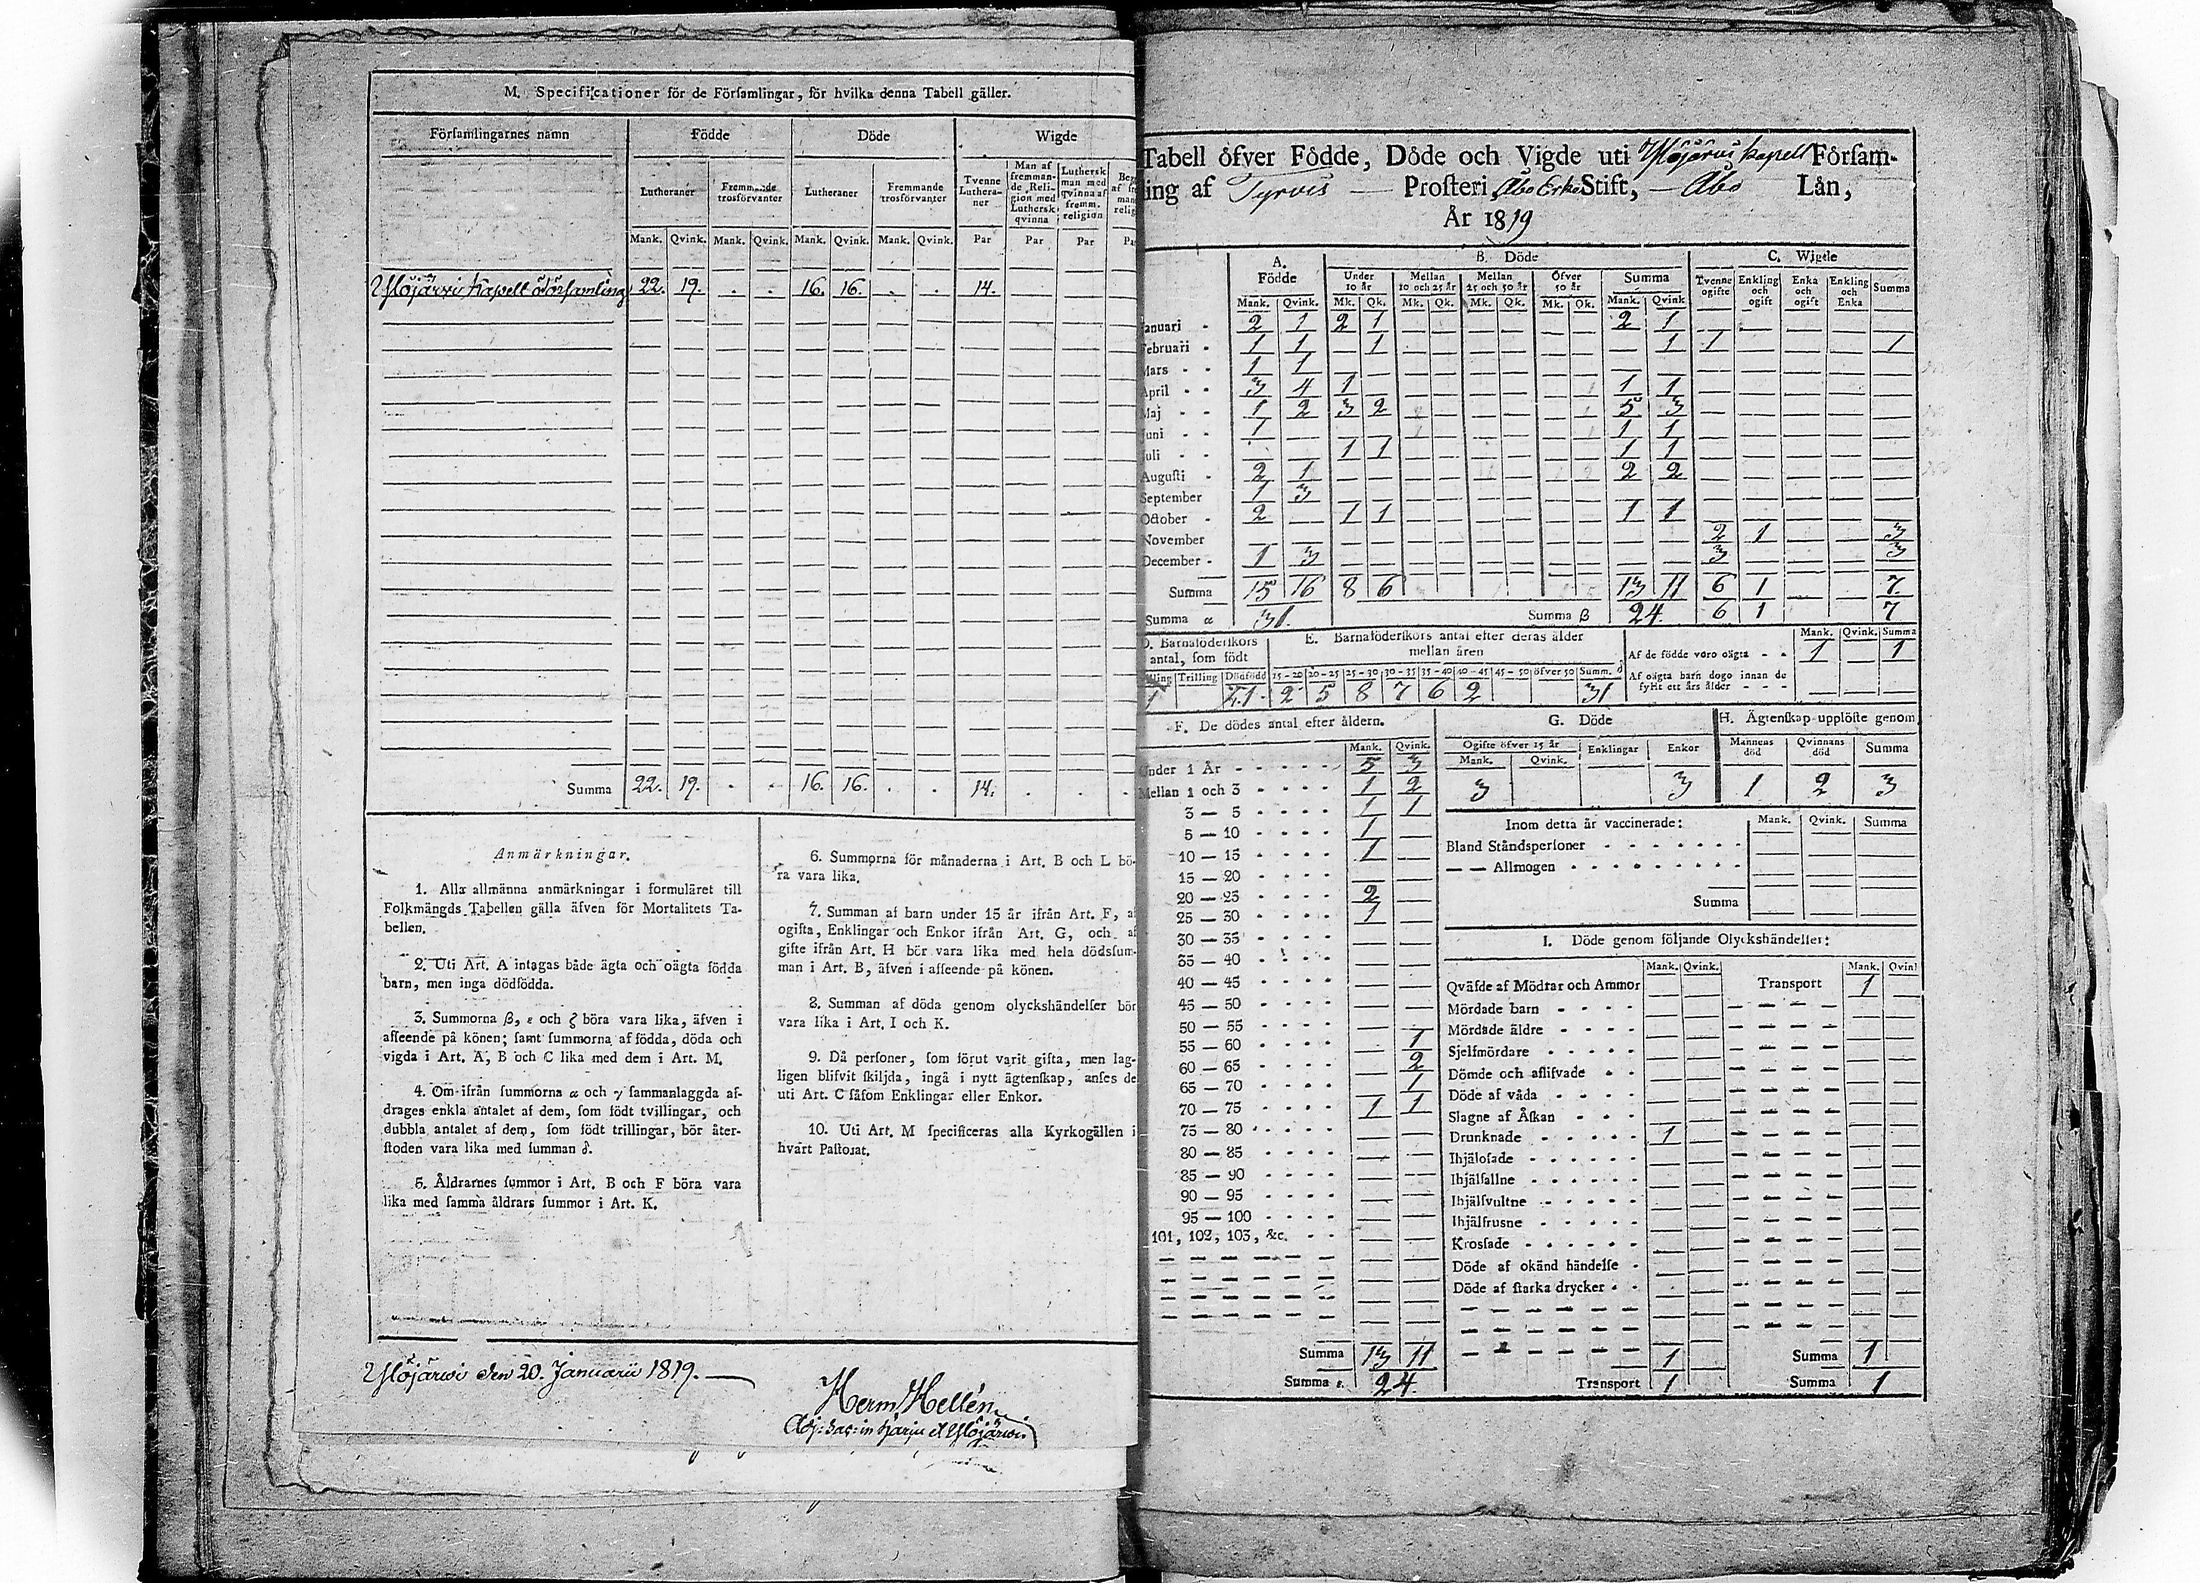 M. Specificationer för de Församlingar, för hvilka denna Tabell gäller.
Församlingarnes namn Födde Döde Wigde
Lutheraner Fremmande trosförvanter Lutheraner Fremmande trosförvanter Tvenne Lutheraner Man af fremmande Religion med Luthersk qvinna Luthersk man med qvinna af fremm. religion
Mank. Qvink. Mank. Qvink. Mank. Qvink. Mank. Qvink. Par Par Par
Ylöjärwi Kapell Församling 22. 19. 16. 16. 14.
Summa 22. 19. 16. 16. 14.
Anmärkningar.
1. Alla allmänna anmärkningar i formuläret till
Folkmängds Tabellen gälla äfven för Mortalitets Ta-
bellen.
2. Uti Art. A intagas både ägta och oägta födda
barn, men inga dödfödda.
3. Summorna β, ε och ζ böra vara lika, äfven i
affeende på könen; samt summorna af födda, döda och
vigda i Art. A, B och C lika med dem i Art. M.
4. Om ifrån summorna α och γ sammanlaggda af-
drages enkla antalet af dem, som födt tvillingar, och
dubbla antalet af dem, som födt trillingar, bör åter-
stoden vara lika med summan δ.
5. Åldrarnes summor i Art. B och F böra vara
lika med samma åldrars summor i Art. K.
6. Summorna för månaderna i Art. B och L bö-
ra vara lika.
7. Summan af barn under 15 år ifrån Art. F, af
ogifta, Enklingar och Enkor ifrån Art. G, och af
gifte ifrån Art. H bör vara lika med hela dödssum-
man i Art. B, äfven i affeende på könen.
8. Summan af döda genom olyckshändelser bör
vara lika i Art. I och K.
9. Då personer, som förut varit gifta, men lag-
ligen blifvit skiljda, ingå i nytt ägtenskap, anses de
uti Art. C såsom Enklingar eller Enkor.
10. Uti Art. M specificeras alla Kyrkogällen i
hvart Pastorat.
Ylöjärwi den 20. Januarii 1819.
Herm Hellén
Tabell öfver Födde, Döde och Vigde uti Ylöjärvi kapell Församling
af Tyrvis Prosteri, Åbo Erke Stift, Åbo Län,
År 1819
A. Födde B. Döde C. Wigde
Under 10 år Mellan 10 och 25 år Mellan 25 och 50 år Öfver 50 år Summa Tvenne ogifte Enkling och ogift Enka och ogift Enkling och Enka Summa
Mank. Qvink. Mk. Qk. Mk. Qk. Mk. Qk. Mk. Qk. Mank. Qvink
Januari 2 1 2 1 2 1
Februari 1 1 1 1 1 1
Mars 1 1
April 3 4 1 1 1 1
Maj 1 2 3 2 1 5 3
Juni 1 1 1
Juli 1 1 1 1
Augusti 2 1 2 2
September 1 3
October 2 1 1 1 1
November 2 1 3
December 1 3 3 3
Summa 15 16 8 6 13 11 6 1 7.
Summa α 31. Summa β 24. 6 1 7
D. Barnaföderskors antal, som födt
Trilling Dödfödd
1 1
E. Barnaföderskors antal efter deras ålder mellan åren
15-20 20-25 25-30 30-35 35-40 40-45 45-50 öfver 50 Summ. δ
2 5 8 7 6 2 31
Mank. Qvink. Summa
Af de födde voro oägta 1 1
Af oägta barn dogo innan de fyllt ett års ålder
F. De dödes antal efter åldern.
Mank. Qvink.
Under 1 År 5 3
Mellan 1 och 3 1 2
3 — 5 1 1
5 — 10 1
10 — 15 1
15 — 20
20 — 25 2
25 — 30 1
30 — 35
35 — 40
40 — 45
45 — 50
50 — 55
55 — 60 1
60 — 65 2
65 — 70 1
70 — 75 1 1
75 — 80
80 — 85
85 — 90
90 — 95
95 — 100
101, 102, 103, &c.
Summa 13 11
Summa ε. 24.
G. Döde
Ogifte öfver 15 år Enklingar Enkor
Mank. Qvink.
3 3
H. Ägtenskap upplöste genom
Mannens död Qvinnans död Summa
1 2 3
Inom detta år vaccinerade: Mank. Qvink. Summa
Bland Ståndspersoner
— — Allmogen
Summa
I. Döde genom följande Olyckshändelser:
Mank. Qvink. Mank. Qvink
Qväfde af Mödrar och Ammor Transport 1
Mördade barn
Mördade äldre
Sjelfmördare
Dömde och aflifvade
Döde af våda
Slagne af Åskan
Drunknade 1
Ihjälosade
Ihjälfallne
Ihjälsvultne
Ihjälfrusne
Krossade
Döde af okänd händelse
Döde af starka drycker
1 Summa 1
Transport 1 Summa 1